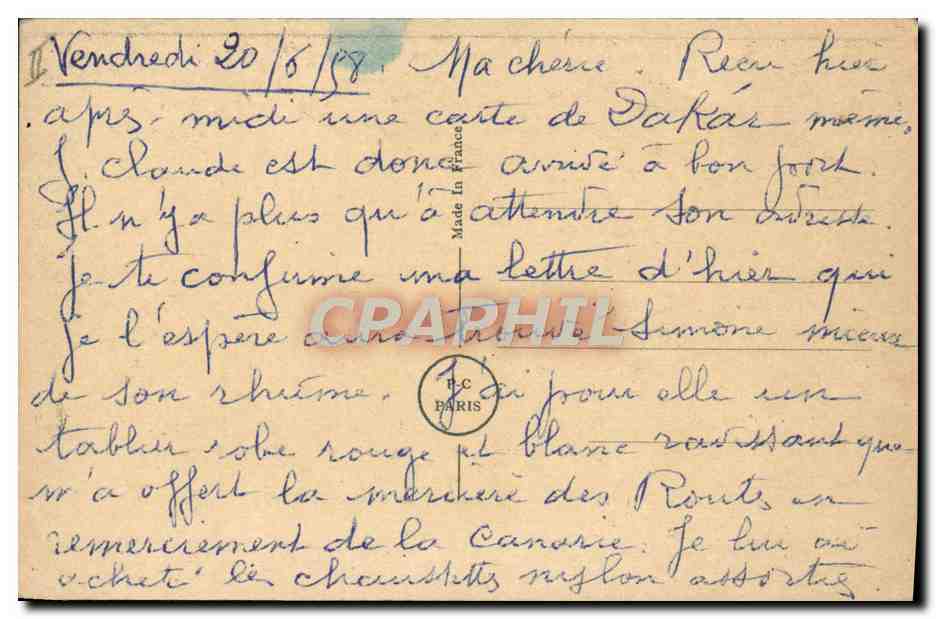 II Vendredi 20/6/58. Ma chérie. Reçu hier
après-midi une carte de Dakar même.
J. Claude est donc arrivé à bon port.
Il n'y a plus qu'à attendre son adresse.
je te confirme ma lettre d'hier qui
je l'espère aura trouvé Simone mieux
de son rhume. J'ai pour elle un
tablier robe rouge et blanc ravissant que
m'a offert la mercière des Routes en
remerciement de la Canarie. Je lui ai
acheté les chaussettes nylon assorties
Made In France
CPARAPHIL
P-C
PARIS